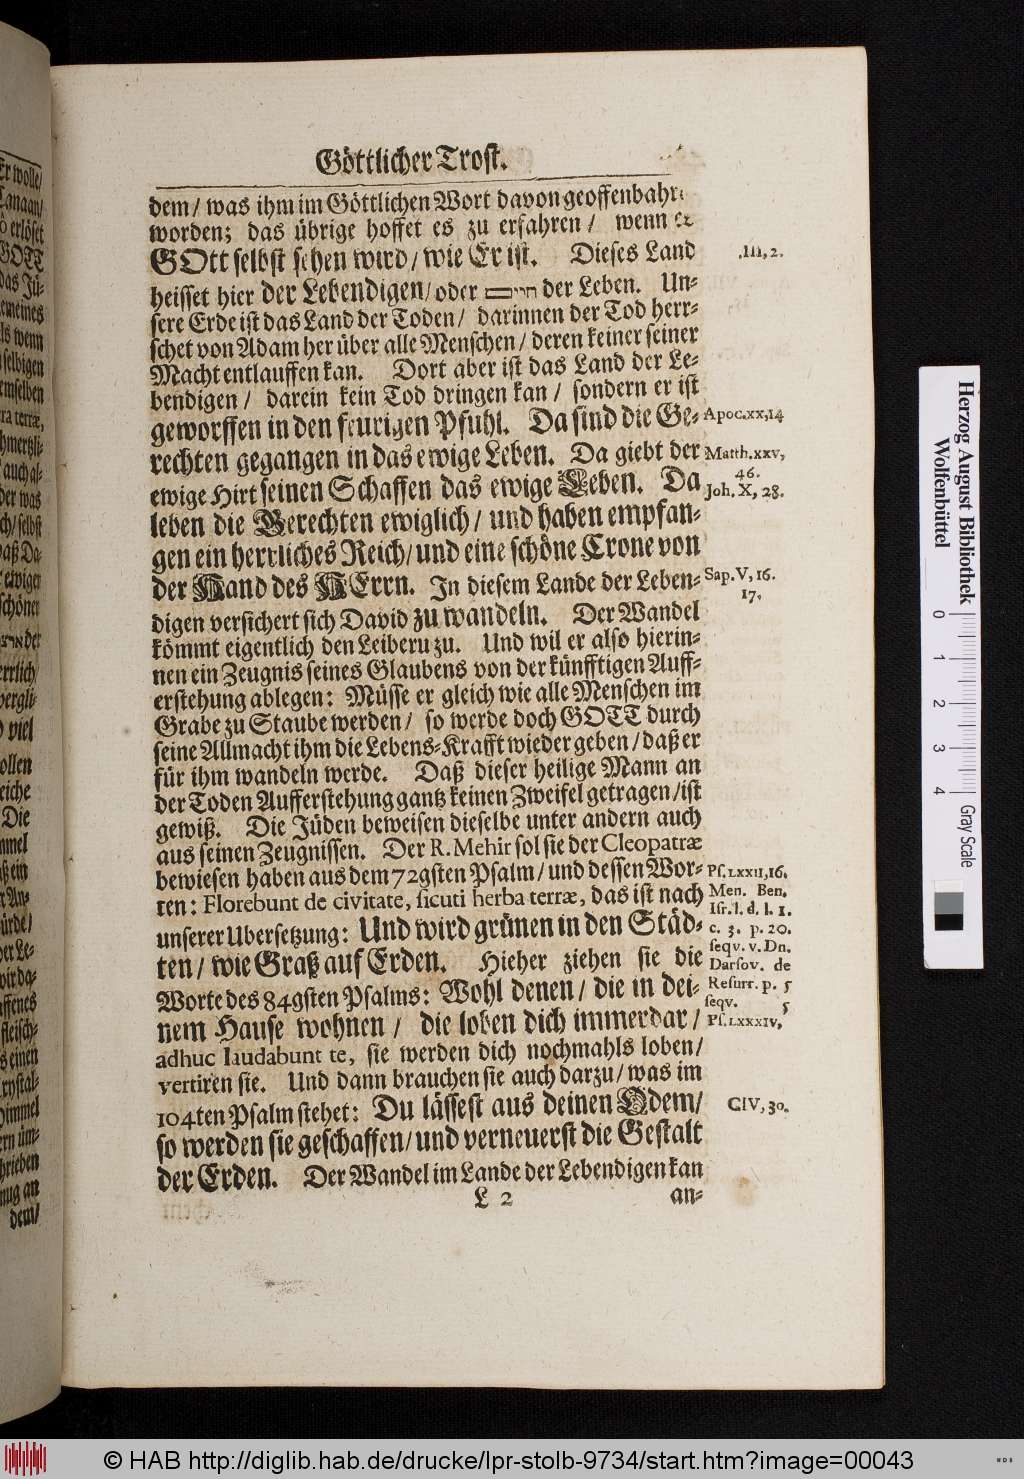 Göttlicher Trost.
dem / was ihm im Göttlichen Wort davon geoffenbahrt
worden; das übrige hoffet es zu erfahren / wenn es
GOtt selbst sehen wird / wie Er ist. Dieses Land
.III, 2.
heisset hier der Lebendigen / oder חיים der Leben. Un-
sere Erde ist das Land der Toden / darinnen der Tod herr-
schet von Adam her über alle Menschen / deren keiner seiner
Macht entlauffen kan. Dort aber ist das Land der Le-
bendigen / darein kein Tod dringen kan / sondern er ist
geworffen in den feurigen Pfuhl. Da sind die Ge-
Apoc. xx, 14
rechten gegangen in das ewige Leben. Da giebt der
Matth. xxv,
46.
ewige Hirt seinen Schaffen das ewige Leben. Da
Joh. X, 28.
leben die Gerechten ewiglich / und haben empfan-
gen ein herrliches Reich / und eine schöne Crone von
der Hand des HErrn. In diesem Lande der Leben-
Sap. V, 16.
17.
digen versichert sich David zu wandeln. Der Wandel
kömmt eigentlich den Leiberu zu. Und wil er also hierin-
nen ein Zeugnis seines Glaubens von der künfftigen Auff-
erstehung ablegen: Müsse er gleich wie alle Menschen im
Grabe zu Staube werden / so werde doch GOTT durch
seine Allmacht ihm die Lebens-Krafft wieder geben / daß er
für ihm wandeln werde. Daß dieser heilige Mann an
der Toden Aufferstehung gantz keinen Zweifel getragen / ist
gewiß. Die Jüden beweisen dieselbe unter andern auch
aus seinen Zeugnissen. Der R. Mehir sol sie der Cleopatræ
bewiesen haben aus dem 72gsten Psalm / und dessen Wor-
Ps. LXXII, 16.
ten: Florebunt de civitate, sicuti herba terræ, das ist nach
Men. Ben.
Isr. l. d. l. 1.
unserer Ubersetzung: Und wird grünen in den Städ-
c. 3. p. 20.
seqv. v. Dn.
ten / wie Graß auf Erden. Hieher ziehen sie die
Darsov. de
Worte des 84gsten Psalms: Wohl denen / die in dei-
Resurr. p. 5
seqv. 5
nem Hause wohnen / die loben dich immerdar /
Ps. LXXXIV,
adhuc laudabunt te, sie werden dich nochmahls loben /
vertiren sie. Und dann brauchen sie auch darzu / was im
104ten Psalm stehet: Du lässest aus deinen Odem /
CIV, 30.
so werden sie geschaffen / und verneuerst die Gestalt
der Erden. Der Wandel im Lande der Lebendigen kan
L 2
an-
Er wolle /
Canaan /
erlöset
GOTT
das Jü-
gemeines
als wenn
selbigen
demselben
terra terræ,
schmertzli-
auch al-
der was
selbst
daß Da-
ewigen
schöner
der
herrlich
vergli-
viel
wollen
Die
ein
An-
würde /
der Le-
wir da-
fleisch-
einen
Crystal-
Himmel
üm-
an
dem /
Herzog August Bibliothek
Wolfenbüttel
0 1 2 3 4
Gray Scale
© HAB http://diglib.hab.de/drucke/lpr-stolb-9734/start.htm?image=00043